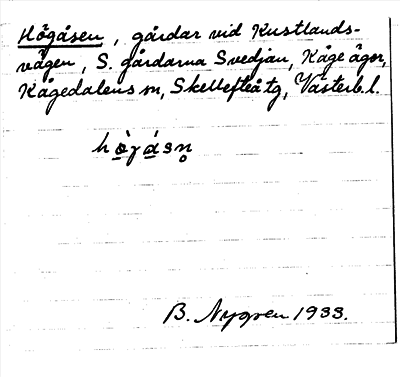 Högåsen, gårdar vid Kustlands-
vägen, S. gårdarna Svedjan, Kåge ägor,
Kågedalens sn, Skellefteå tg, Västerb. l.
B. Nygren 1933.